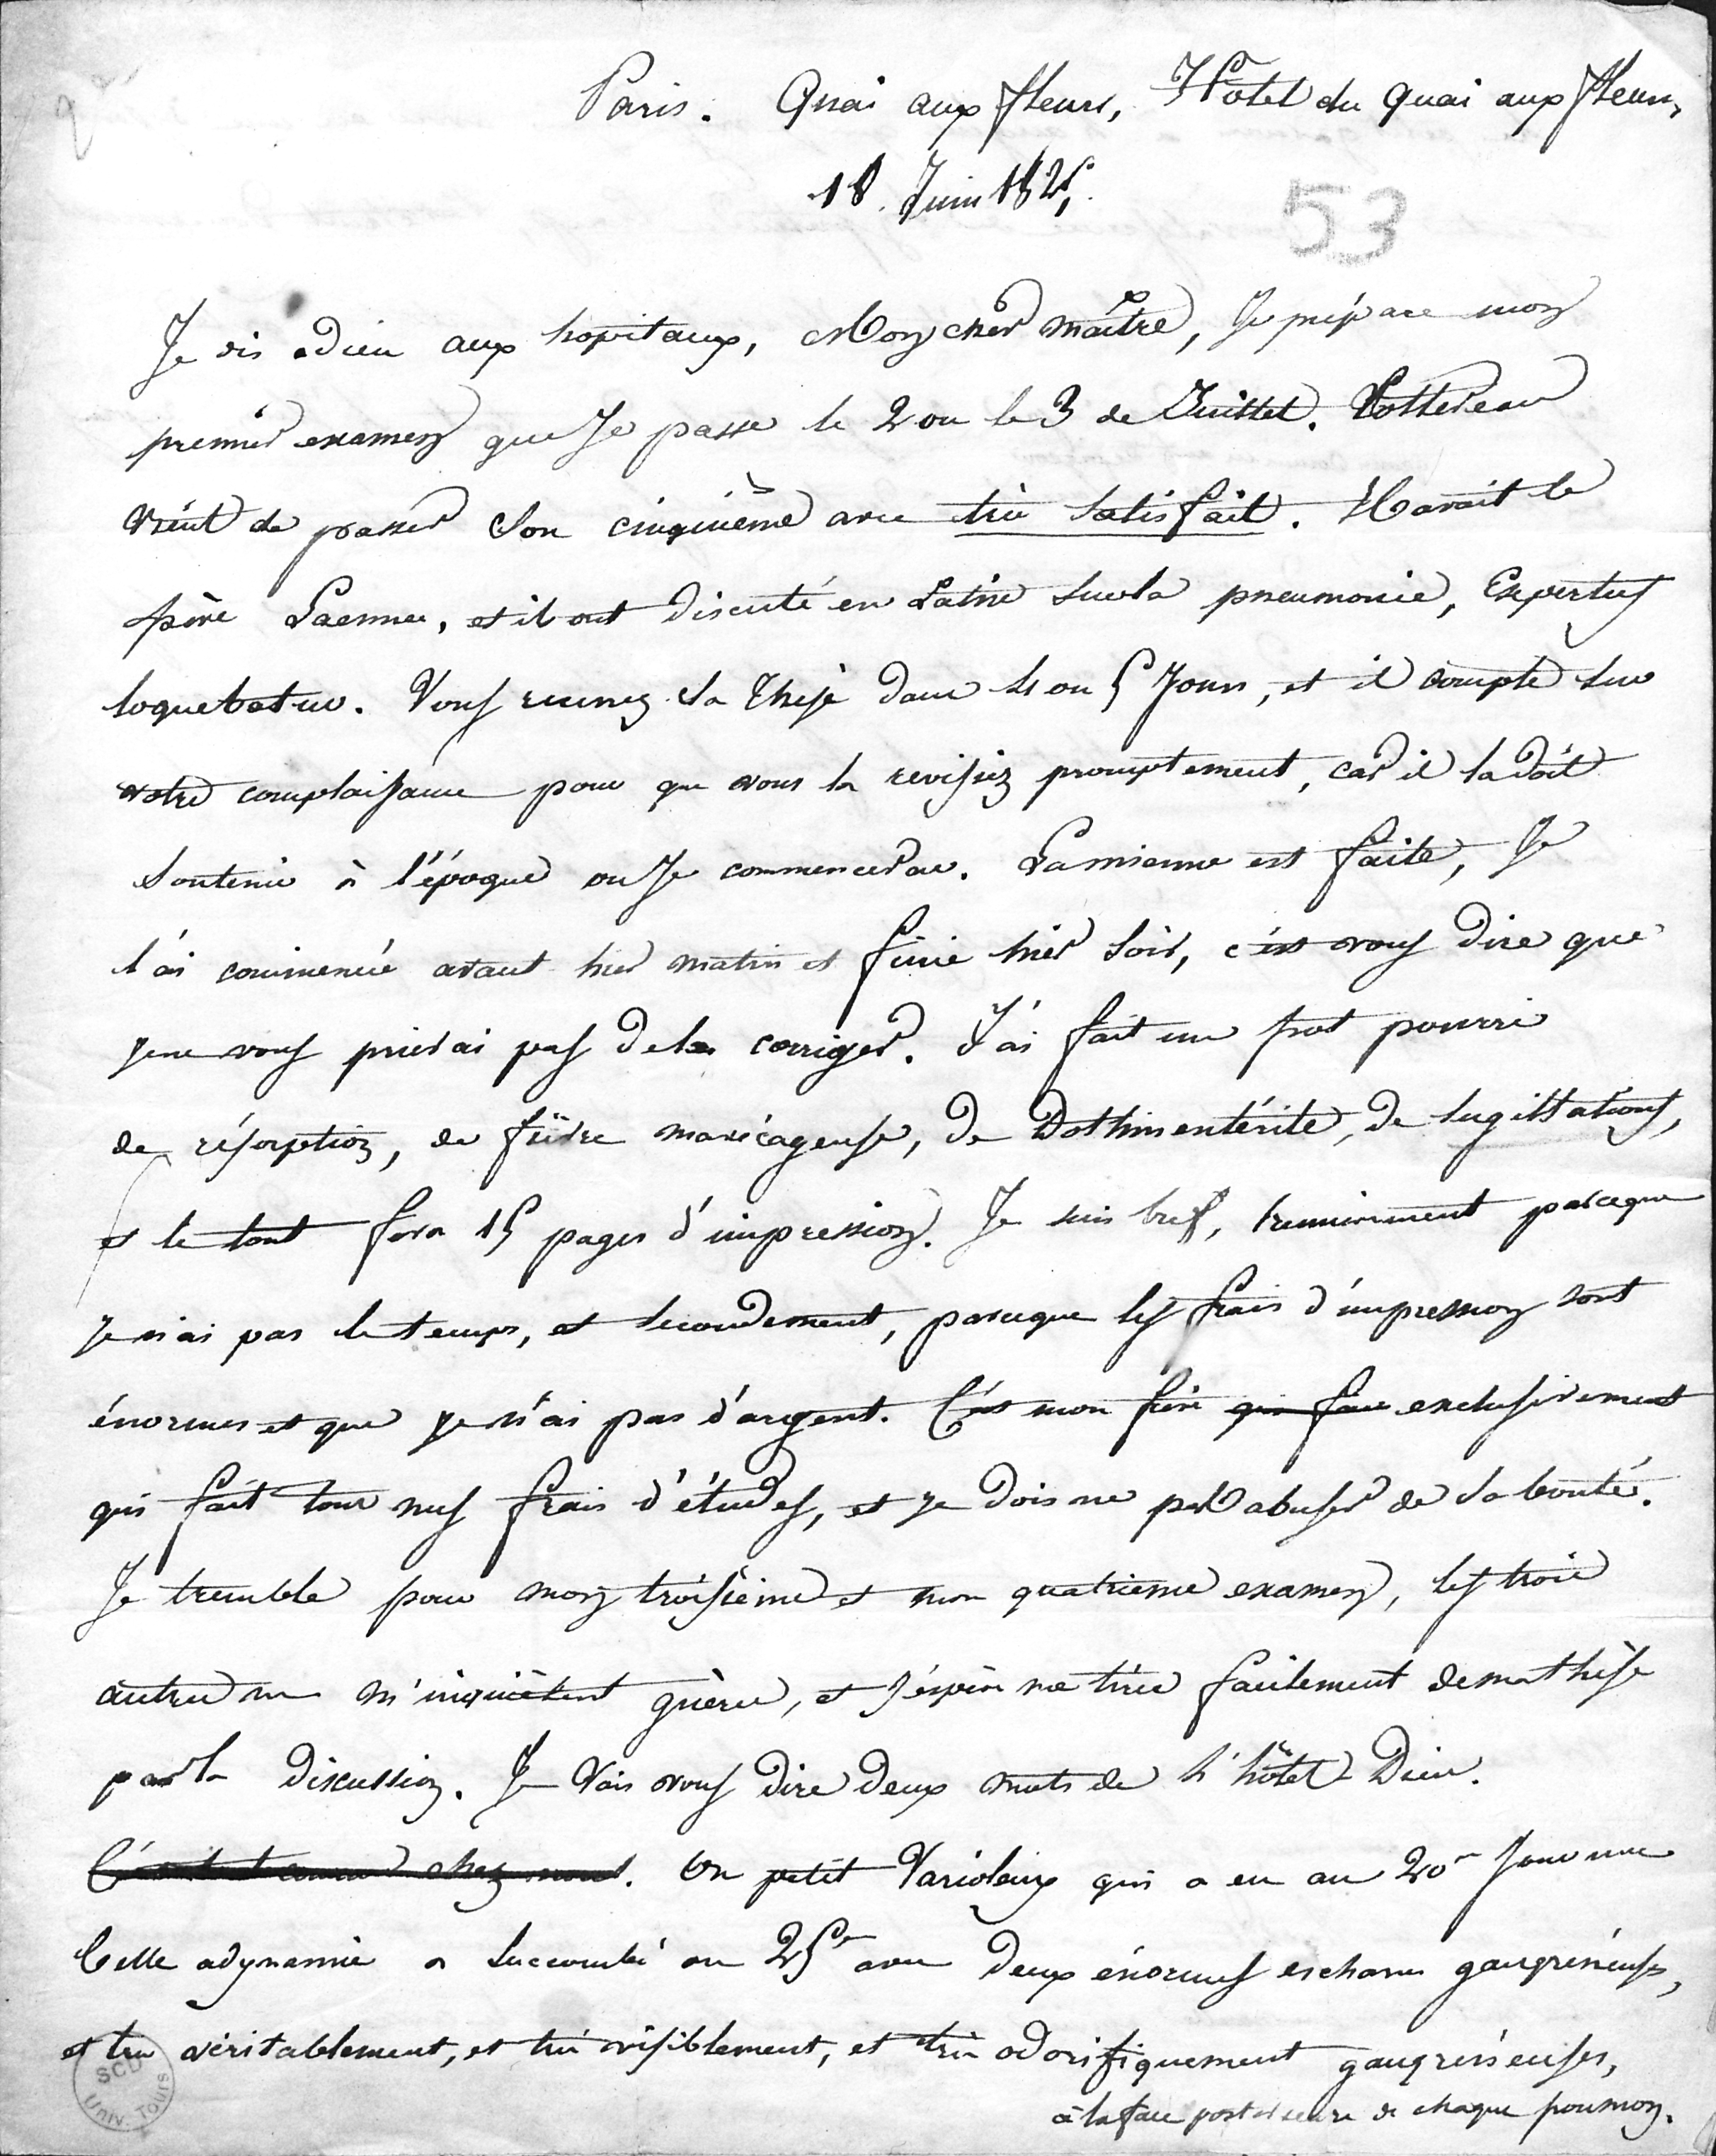 Paris. Quai aux fleurs, Hôtel du Quai aux fleurs,
18. Juin 1825.
53
Je dis adieu aux hopitaux, Mon cher maître, Je prépare mon
premier examen que Je passe le 2 ou le 3 de Juillet. Vottereau
vient de passer Son cinquième avec très Satisfait. Il avait le
père Laennec, et ils ont discuté en Latin Sur la pneumonie, Expertus
loquebatur. Vous recevrez Sa Thèse dans 4 ou 5 Jours, et il compte Sur
votre complaisance pour que vous la revisiez promptement, car il la doit
Soutenir à l'époque ou Je commencerai. La mienne est faite, Je
l'ai commencée avant hier matin et finie hier Soir, c'est vous dire que
Je ne vous prierai pas de la corriger. J'ai fait un pot pourri
de résorption, de fièvre marécageuse, de Dothinentérite, de Sugillations,
et le tout fera 15 pages d'impression. Je suis bref, premièrement parceque
Je n'ai pas le temps, et Secondement, parceque les frais d'impression sont
énormes et que Je n'ai pas d'argent. C'est mon frère qui fait exclusivement
qui fait tous mes frais d'études, et Je dois ne pas abuser de Sa bonté.
Je tremble pour mon troisième et mon quatrième examen, les trois
autres ne m'inquiètent guères, et J'espère me tirer facilement de ma thèse
par la Discussion. Je Vais vous dire deux mots de l'hôtel-Dieu.
Un petit Varioleux qui a eu au 20e Jour une
belle adynamie a Succombé au 25e avec deux énormes escharres gangréneuses,
et très véritablement, et très visiblement, et très odorifiquement gangréneuses,
à la face postérieure de chaque poumon.
SCD
Univ. Tours